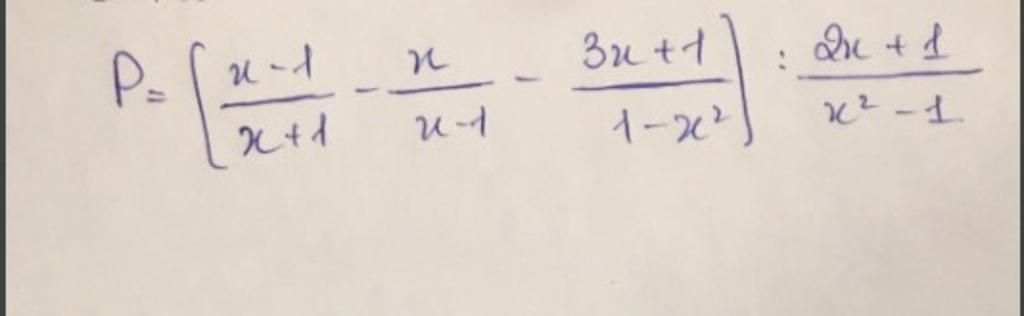 P = [ (x-1)/(x+1) - x/(x-1) - (3x+1)/(1-x²) ] : (2x+1)/(x²-1)